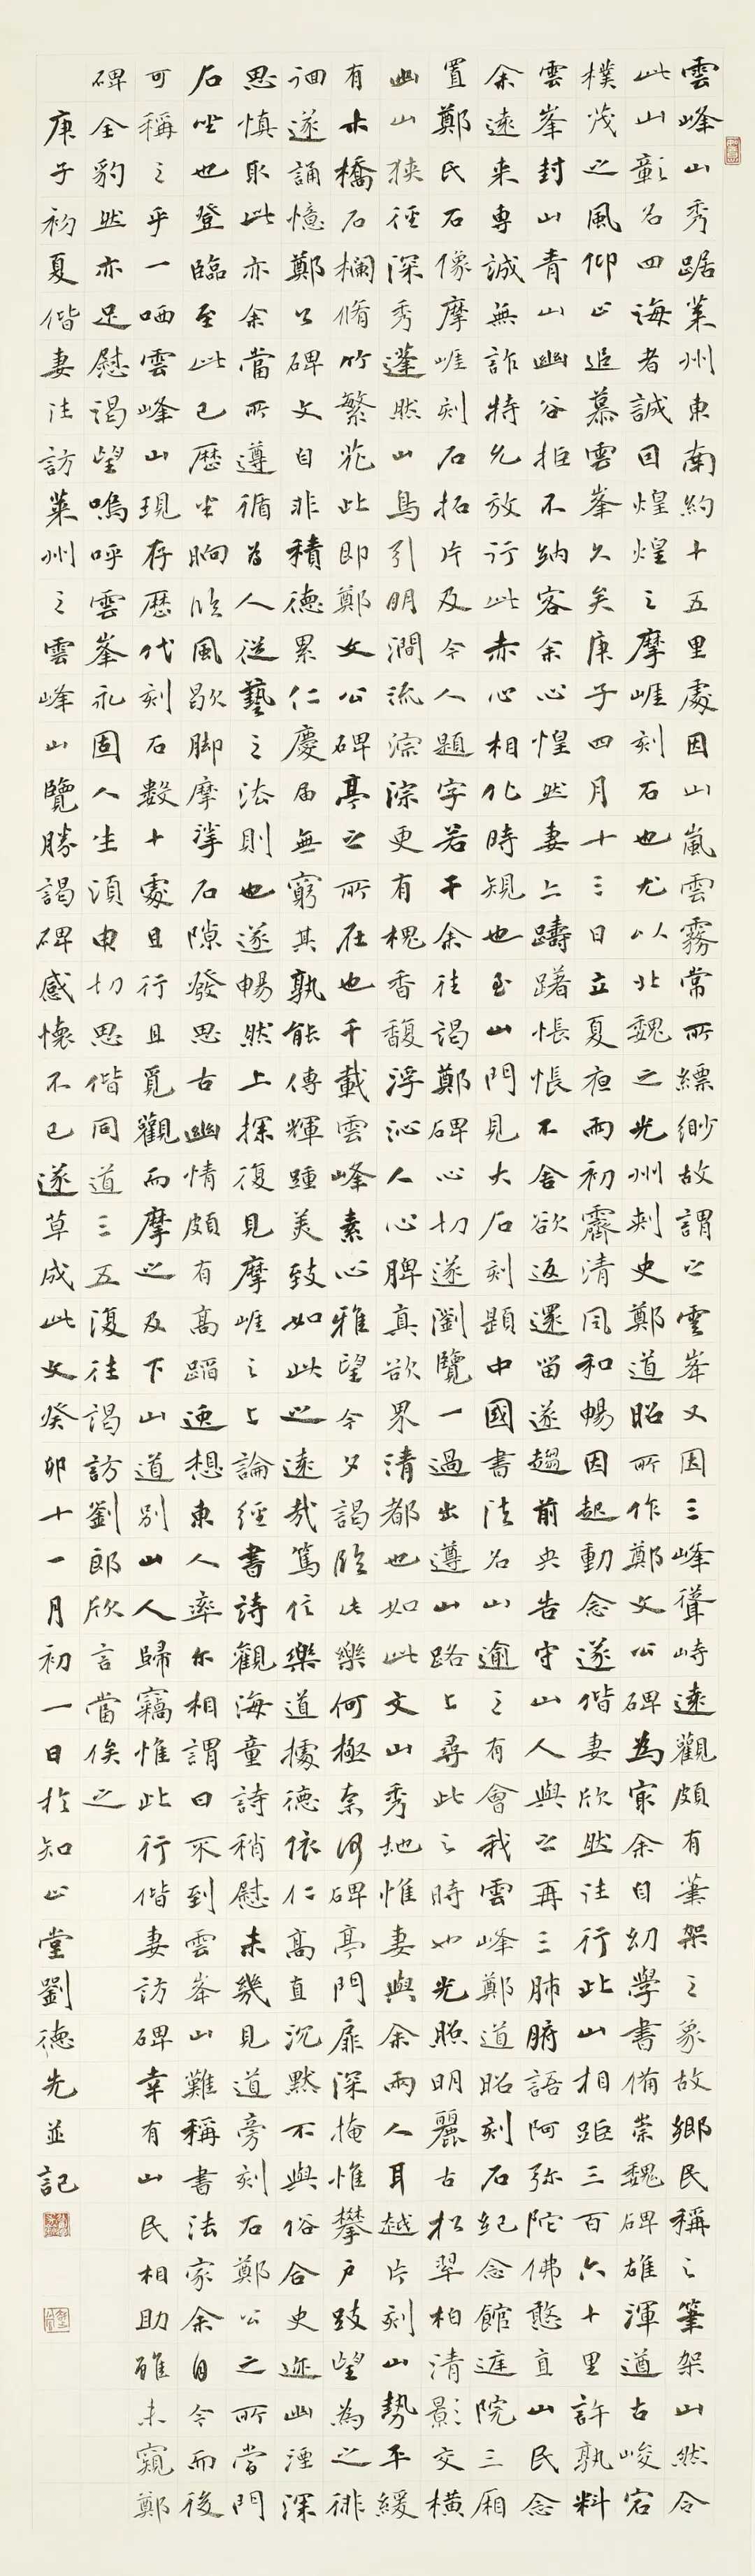 雲峰山秀踞萊州東南約十五里處因山嵐雲霧常所縹緲故謂之雲峯又因三峰聳峙遠觀頗有筆架之象故鄉民稱之筆架山然令
此山彰名四海者誠因煌煌之摩崖刻石也尤以北魏之光州刺史鄭道昭所作鄭文公碑為最余自幼學書備崇魏碑雄渾遒古峻宕
樸茂之風仰止追慕雲峯久矣庚子四月十三日立夏夜雨初霽清風和暢因起動念遂偕妻欣然往行此山相距三百六十里許孰料
雲峯封山青山幽谷拒不納客余心惶然妻亦躊躇悵悵不舍欲返還留遂趨前央告守山人與之再三肺腑語阿弥陀佛憨直山民念
余遠来專誠無詐特允放行此赤心相化時規也至山門見大石刻題中國書法名山逾之有會我雲峰鄭道昭刻石紀念館進院三厢
置鄭氏石像摩崖刻石拓片及今人題字若干余往謁鄭碑心切遂瀏覽一過出遵山路上尋此之時也光照明麗古松翠柏清影交橫
幽山狹徑深秀蓬然山鳥引明澗流淙淙更有槐香馥浮沁人心脾真欲界清都也如此文山秀地惟妻與余兩人耳越片刻山勢平緩
有木橋石欄脩竹繁花此即鄭文公碑亭之所在也千載雲峰素心雅望今夕謁臨此樂何極奈何碑亭門扉深掩惟攀戶跂望為之徘
徊遂誦憶鄭公碑文自非積德累仁慶屆無窮其孰能傳輝踵美致如此之遠哉篤信樂道據德依仁高直沉默不與俗合史迹幽湮深
思慎取此亦余當所遵循為人從藝之法則也遂暢然上探復見摩崖之上論經書詩觀海童詩稍慰未幾見道旁刻石鄭公之所當門
石坐也登臨至此已歷坐晌臨風歇脚摩挲石隙發思古幽情頗有高蹈逸想東人率尔相謂曰不到雲峯山難稱書法家余自今而後
可稱之乎一哂雲峰山現存歷代刻石數十處且行且覓觀而摩之及下山道別山人歸竊惟此行偕妻訪碑幸有山民相助雖未窺鄭
碑全豹然亦足慰謁望嗚呼雲峯永固人生須申切思偕同道三五復往謁訪劉郎欣言當俟之
庚子初夏偕妻往訪萊州之雲峰山覽勝謁碑感懷不已遂草成此文癸卯十一月初一日於知止堂劉德先並記